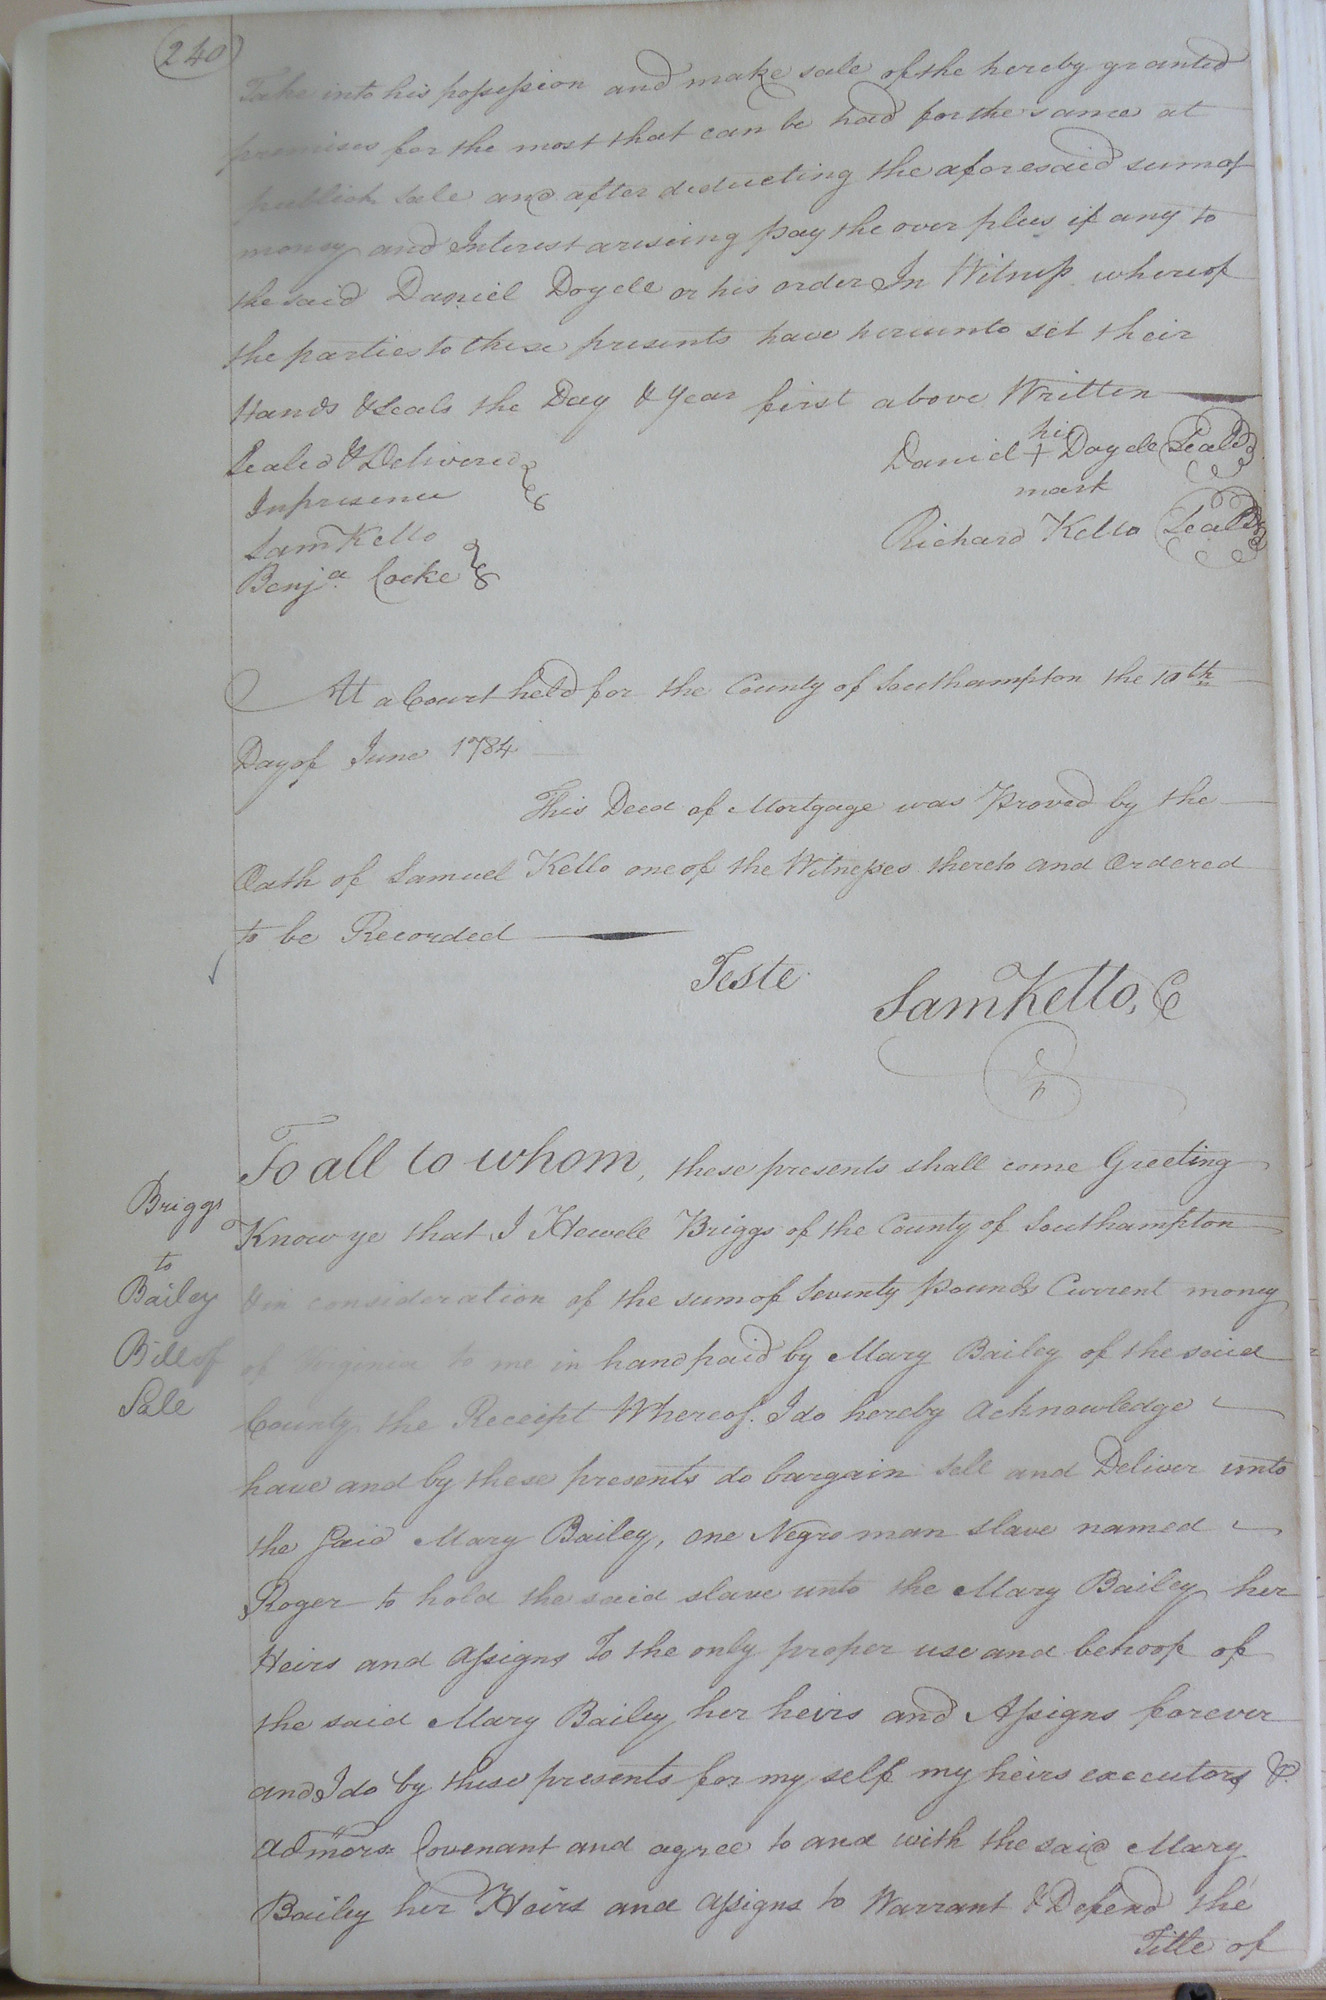 240
Take into his possession and make sale of the hereby granted
premises for the most that can be had for the same at
publick sale and after deducting the aforesaid sum of
money and Interest ariseing pay the over plus if any to
the said Daniel Doyele or his order In Witness whereof
the parties to these presents have hereunto set their
Hands & Seals the Day & Year first above Written
Sealed & Delivered
In presence
Sam Kello
Benja. Cocke
his
Daniel + Doyele Seal
mark
Richard Kello Seal
At a Court held for the County of Southampton the 10th
Day of June 1784
This Deed of Mortgage was Proved by the
Oath of Samuel Kello one of the Witnesses thereto and Ordered
to be Recorded
Teste
Sam Kello, C
Briggs
to
Bailey
Bill of
Sale
To all to whom, these presents shall come Greeting
Know ye that I Howell Briggs of the County of Southampton
& in consideration of the sum of Seventy Pounds Current money
of Virginia to me in hand paid by Mary Bailey of the said
County the Receipt Whereof. I do hereby Acknowledge
have and by these presents do bargain sell and Deliver unto
the said Mary Bailey, one Negro man slave named
Roger to hold the said slave unto the Mary Bailey her
Heirs and Assigns To the only proper use and behoof of
the said Mary Bailey her heirs and Assigns forever
and I do by these presents for my self my heirs executors &.
Admors. Covenant and agree to and with the said Mary
Bailey her Heirs and Assigns to Warrant & Defend the
Title of